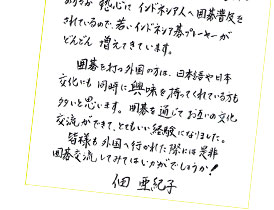 熱心にインドネシア人へ囲碁普及を
されているので、若いインドネシア碁プレーヤーが
どんどん 増えてきています。
囲碁を打つ外国の方は、日本語や日本
文化にも 同時に興味を持ってくれている方も
多いと思います。囲碁を通じてお互いの文化
交流ができて、とてもいい経験になりました。
皆様も外国へ行かれた際には是非
囲碁交流してみてはいかがでしょうか！
佃 亜紀子